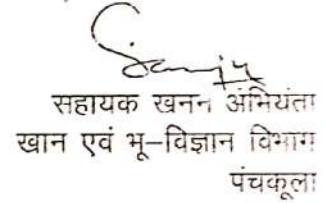 Sanju
सहायक खनन अभियंता
खान एवं भू-विज्ञान विभाग
पंचकूला